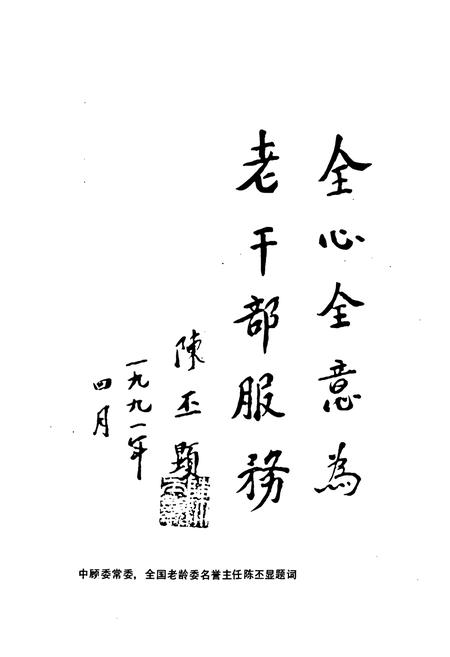 全心全意為
老干部服務
陳丕顯
一九九一年
四月
中顾委常委，全国老龄委名誉主任陈丕显题词